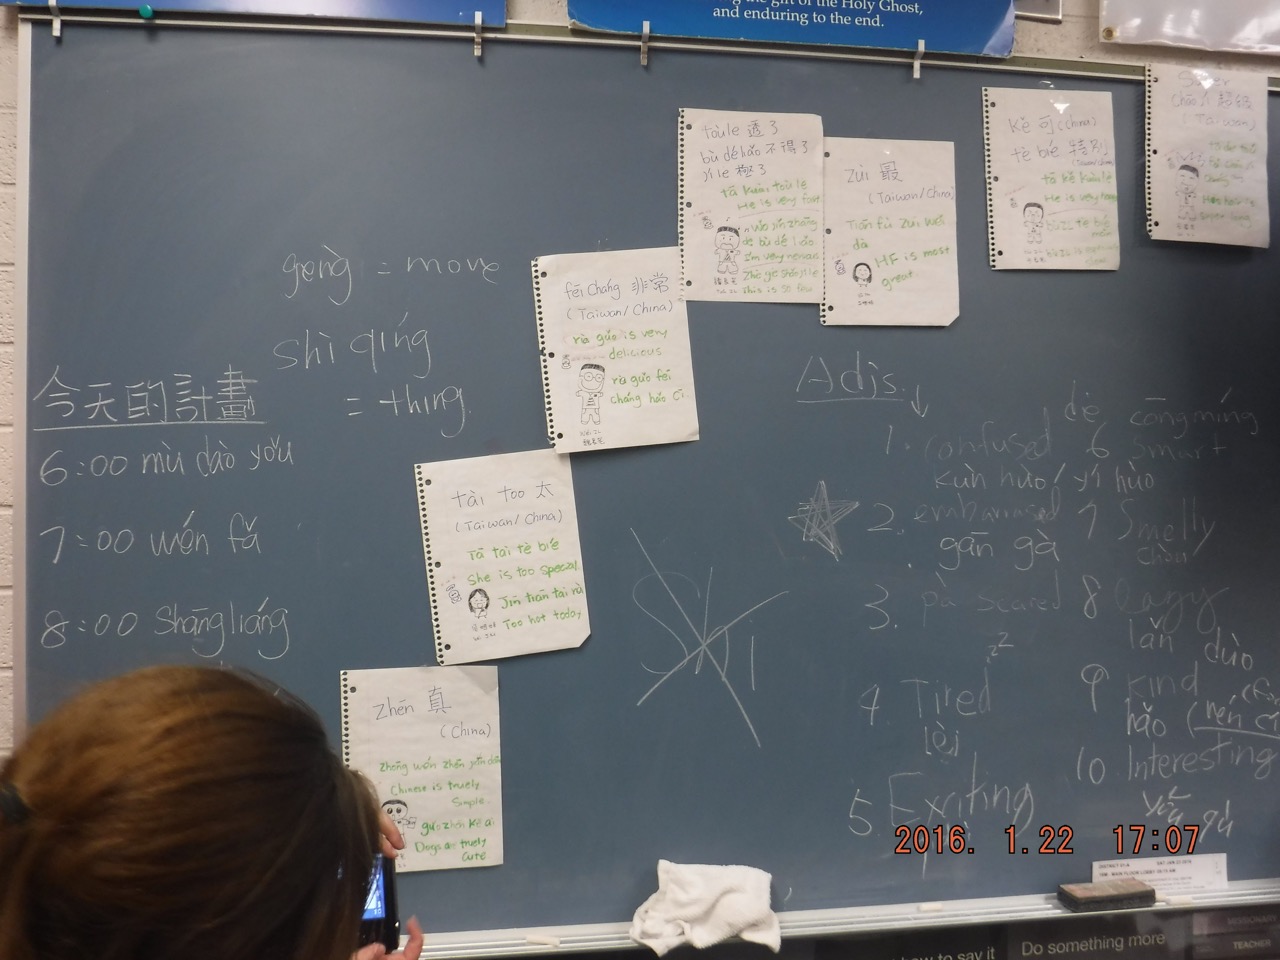 the gift of the Holy Ghost,
and enduring to the end.
gèng = move
shì qíng
= thing
今天的計畫
6:00 mù dào yǒu
7:00 wén fǎ
8:00 Shāng liáng
zhēn 真
(China)
Chinese is truely
Simple.
Dogs are truely
cute
tài too 太
(Taiwan/China)
Tā tài tè bié
She is too special
Jīn tiān tài rè
Too hot today
fēi cháng 非常
(Taiwan/China)
rè gǒu is very
delicious
rè gǒu fēi
cháng hǎo cī
tòule 透了
bù déliǎo 不得了
jíle 極了
tā kuài tòu le
He is very fast
wǒ jǐn zhāng
de bù dé liǎo
I'm very nervous
Zhè ge shǎo jí le
this is so few
zuì 最
(Taiwan/China)
Tiān fù zuì wěi
dà
HF is most
great.
kě 可 (China)
tè bié 特別
(Taiwan/China)
He is very happy
Super
chāo 超級
(Taiwan)
Adjs. ↓
1. confused
kùn huò / yí huò
2. embarrassed
gān gà
3. pà scared
4. Tired
lèi
5. Exciting
cōngmíng
6 Smart
7 Smelly
chòu
8 Lazy
lǎn duò
9 Kind
hǎo
10 Interesting
yǒu qù
Ski
2016. 1.22 17:07
how to say it
Do something more
MISSIONARY
TEACHER